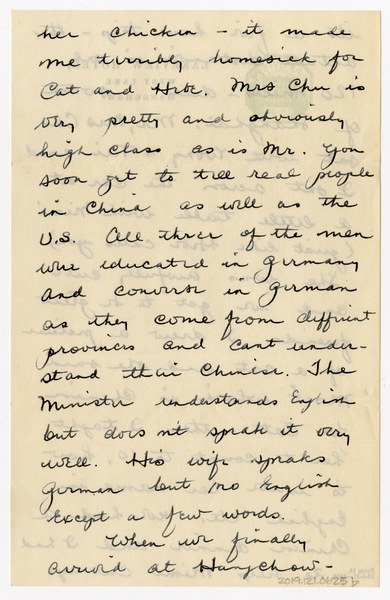 her chicken - it made
me terribly homesick for
Cat and Hrbe. Mrs Chu is
very pretty and obviously
high class as is Mr. You
soon get to tell real people
in China as well as the
U.S. All three of the men
were educated in Germany
and converse in German
as they come from different
provinces and cant under-
stand their Chinese. The
Minister understands English
but does n't speak it very
well. His wife speaks
German but no English
except a few words.
When we finally
arrived at Hangchow-
2019.121.0625b